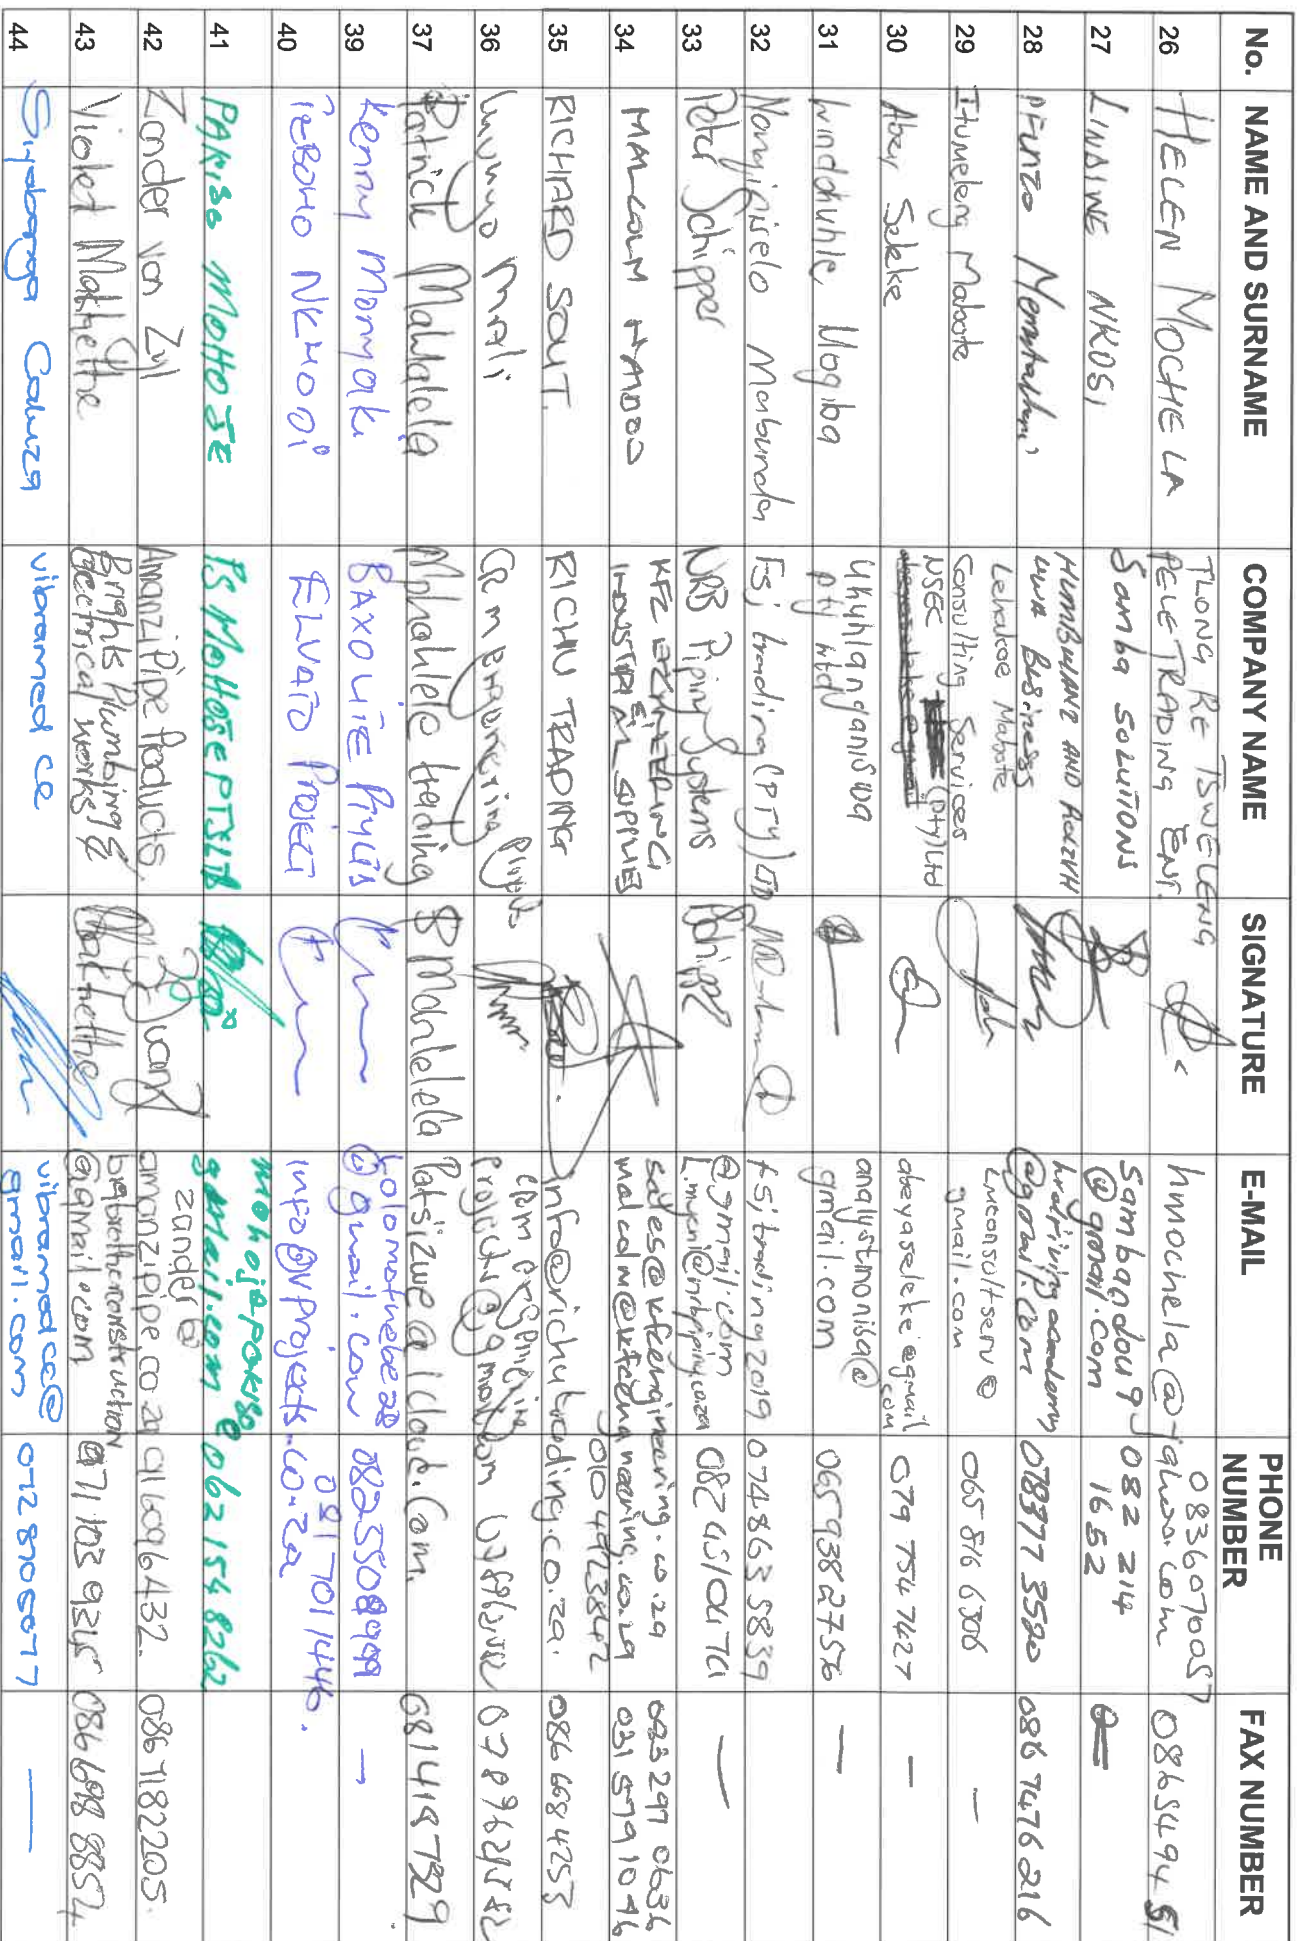 No. NAME AND SURNAME COMPANY NAME SIGNATURE E-MAIL PHONE NUMBER FAX NUMBER
26 HELEN MOCHELA TLONG RE TSWELENG
PELE TRADING ENT. hmochela@yahoo.com 0836070057 0865494 51
27 LINDIWE NKOSI Samba SOLUTIONS Sambandou9
@gmail.com 082 214
1652
28 PFUNZO HUMBULANI AND
LUWA Business hudriving academy
@gmail.com 078377 3520 086 7476 216
29 Itumeleng Mabote Lehakoe Mabote
Consulting Services Lmconsultserv@
gmail.com 065 816 6306 –
30 Abey Seleke NSEC (Pty)Ltd abeyaseleke@gmail
com 079 754 7427 –
31 Lwindohuhle Mogiba Ukuhlanganiswa
Pty Ltd analystmoniba@
gmail.com 0659382756 –
32 Nonyipiselo Mabunda FSJ trading (PTY) LTD fsjtrading2019
@gmail.com 0748635839
33 Peter Schipper NRB Piping Systems PSchipper L.mykeni@nrbpiping.co.za 0824510470 –
34 MALCOLM NAIDOO KFZ ENGINEERING
INDUSTRIAL SUPPLIES sales@kfzengineering.co.za
malcolm@kfzengineering.co.za 010 4923842 083 297 0634
031 5791046
35 RICHARD SOUT. RICHU TRADING info@richutrading.co.za. 086 6684253
36 Mali GRM Engineering Projects grm engineering
projects@gmail.com 0789621582 0789621582
37 Patrick Mahlalela Mphahlele trading P Mahlalela Patsizwe@icloud.Com. 0814197329
39 Kenny Monyaki BAXOLILE Phylis Solomothebe28
@gmail.com 0825508999 –
40 TEBOHO NKHODI ELVATO PROJECT info@VProjects.co.za 081 701 1446.
41 PAKISO MOHOJE PS MOHOJE PTY LTD mohojepakiso@
gmail.com 062 154 8262
42 Zander Van Zyl Amanzi Pipe Products. zander@
amanzipipe.co.za 0716096432. 0867182205.
43 Violet Makhethe Brights Plumbing &
electrical works Makhethe construction
@gmail.com 071 103 9245 086 698 8854
44 Siyabonga vibramed cc vibramedcc@
gmail.com 0728706077 –